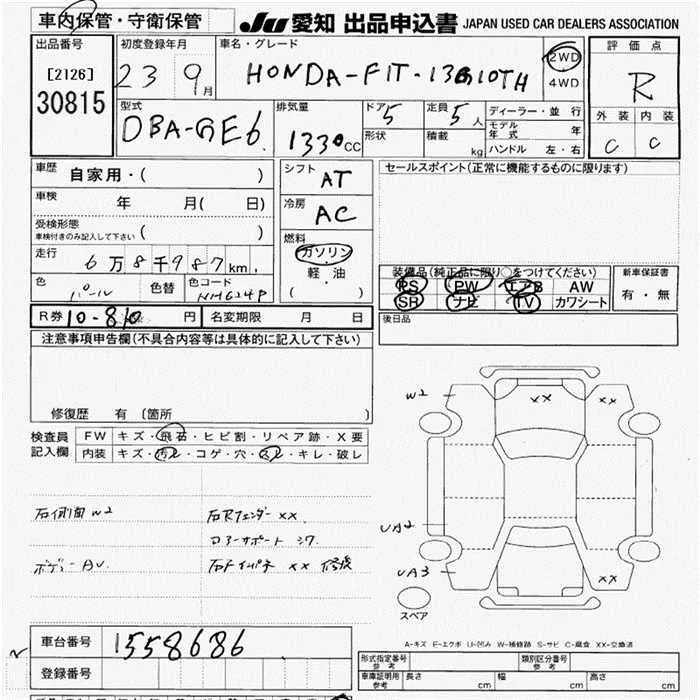 車内保管・守衛保管 JU 愛知 出品申込書 JAPAN USED CAR DEALERS ASSOCIATION
出品番号 初度登録年月 車名・グレード 2WD 評価点
[2126] 23 9月 HONDA-FIT-13G10TH 4WD R
30815 型式 排気量 ドア 5 定員 5人 ディーラー・並行 外装 内装
DBA-GE6 1330cc 形状 積載 kg モデル年式 年 C C
ハンドル 左・右
車歴 自家用・( ) シフト AT セールスポイント(正常に機能するものに限ります)
車検 年 月( 日) 冷房 AC
受検形態 ( )
車検付きのみ記入して下さい
走行 6万8千987km 燃料 ガソリン
軽・油
( )
色 パール 色替 色コード NH624P
装備品(純正品に限り○をつけてください) 新車保証書
PS PW エアB AW 有・無
SR ナビ TV カワシート
R券 10-810円 名変期限 月 日 後日品
注意事項申告欄(不具合内容等は具体的に記入して下さい)
修復歴 有 〔箇所 〕
検査員記入欄 FW キズ・飛石・ヒビ割・リペア跡・X要
内装 キズ・汚レ・コゲ・穴・スレ・キレ・破レ
W2 XX XX
右側面 W2 右Rフェンダー XX
コアーサポート シワ UA2
ボディー AU 右Fインパネ XX 修復 UA3 XX
スペア
A-キズ E-エクボ U-凹み W-補修跡 S-サビ C-腐食 XX-交換済
車台番号 1558686
登録番号
形式指定番号 参考 類別区分番号 参考
車庫証明用 参考 長さ cm 幅 cm 高さ cm